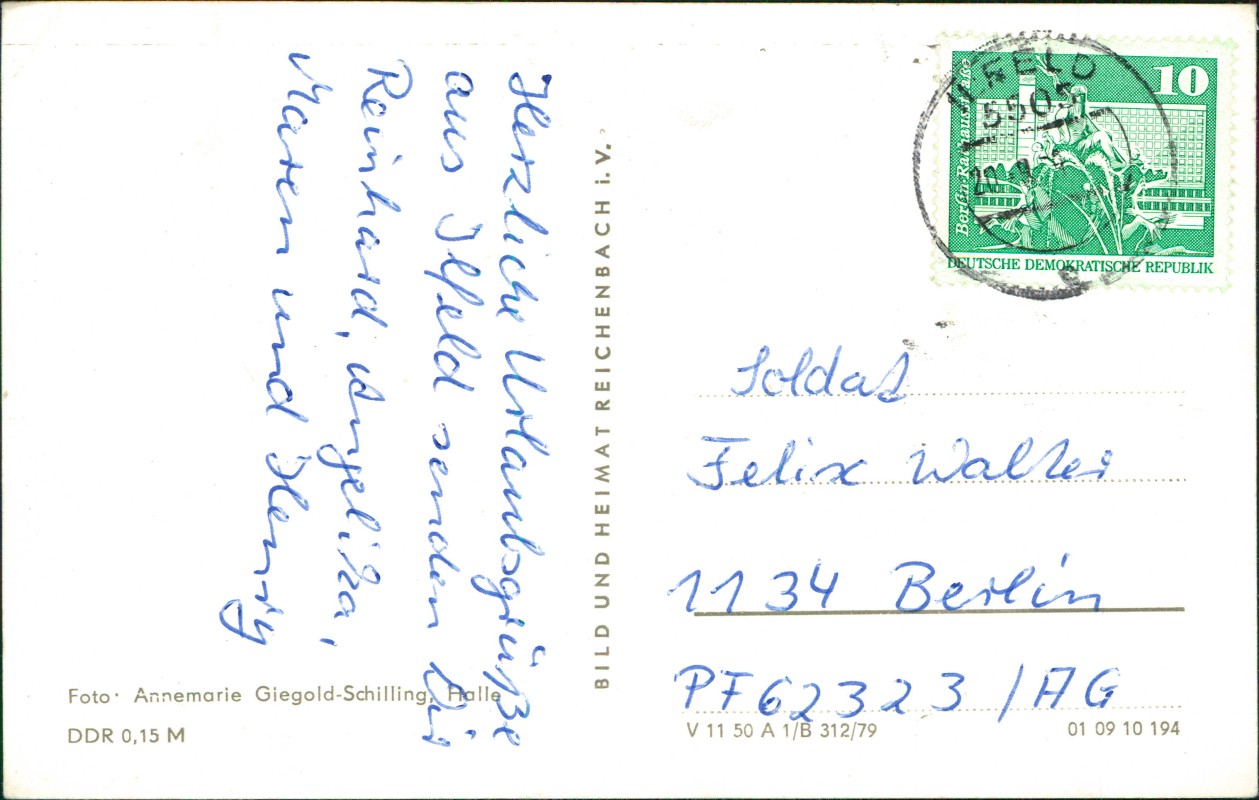 Herzliche Urlaubsgrüße
aus Ilfeld senden Dir
Reinhard, Angelika,
Maren und Henry
Foto · Annemarie Giegold-Schilling, Halle
DDR 0,15 M
BILD UND HEIMAT REICHENBACH i. V.
ILFELD
5505
10
Berlin-Rathausstraße
DEUTSCHE DEMOKRATISCHE REPUBLIK
Soldat
Felix Walter
1134 Berlin
PF 62323 / AG
V 11 50 A 1/B 312/79
01 09 10 194